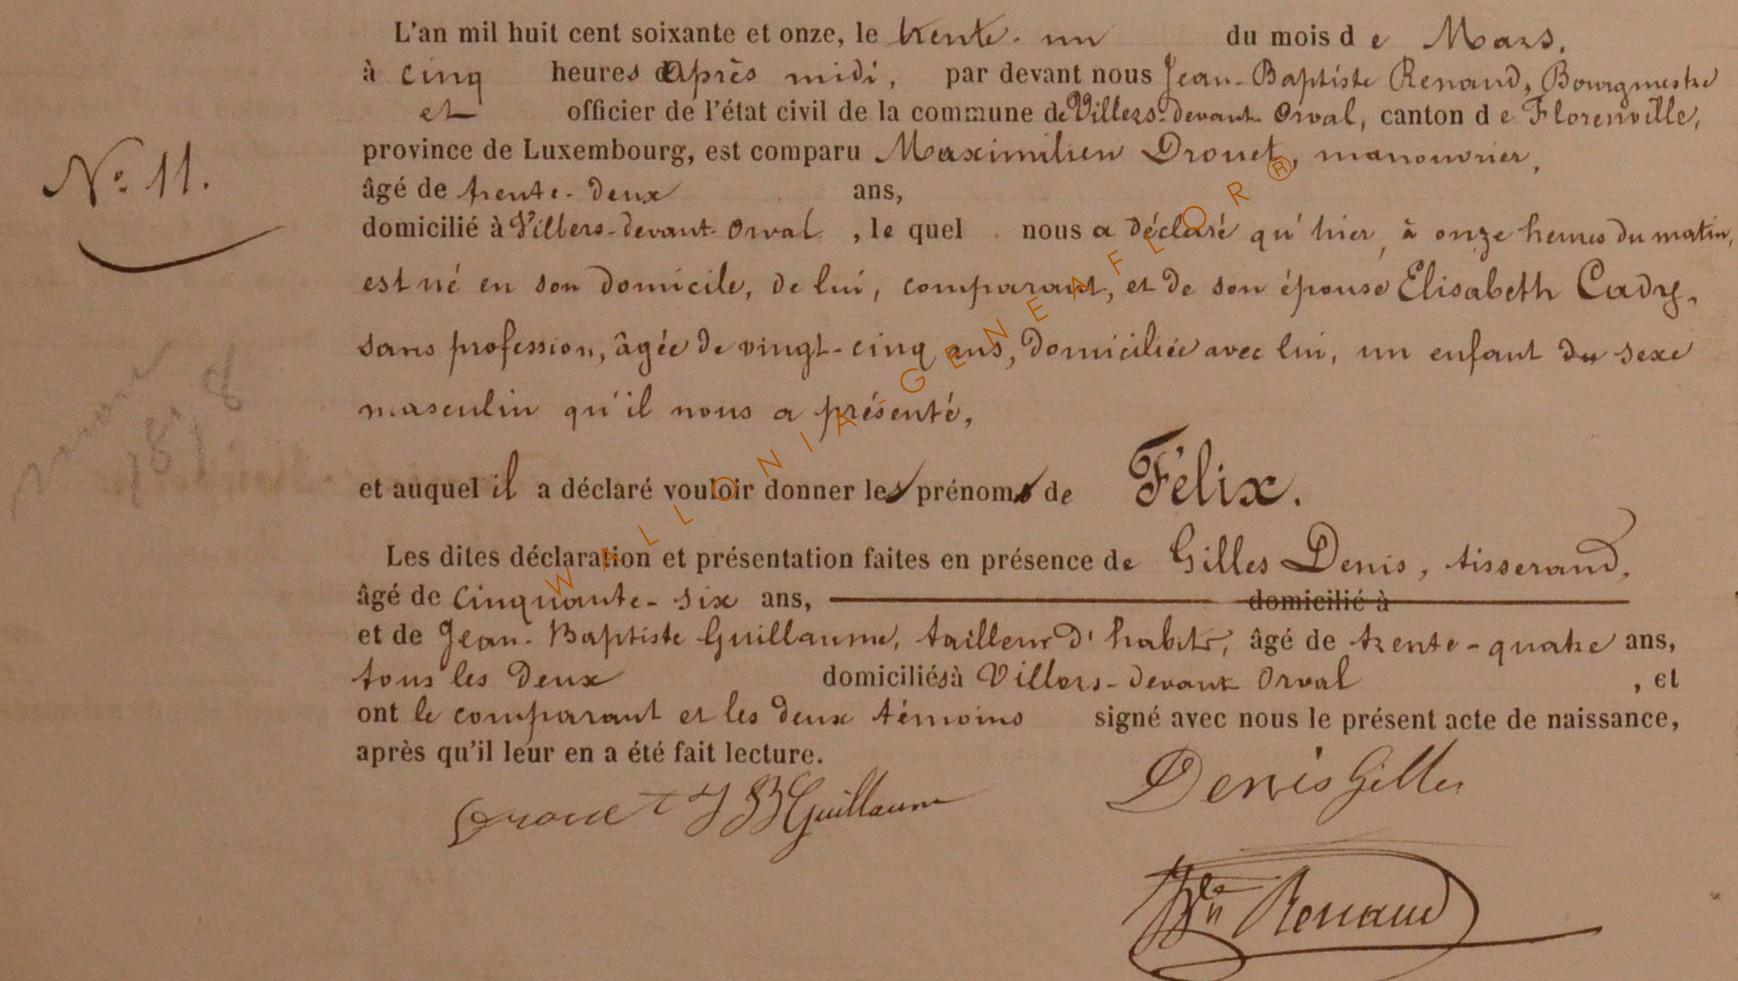 L'an mil huit cent soixante et onze, le trente-un du mois de Mars,
à cinq heures Après midi, par devant nous Jean-Baptiste Renaud, Bourgmestre
et officier de l'état civil de la commune de Villers-devant Orval, canton de Florenville,
N° 11.
province de Luxembourg, est comparu Maximilien Drouet, manouvrier,
âgé de trente-deux ans,
domicilié à Villers-devant-Orval, lequel nous a déclaré qu'hier, à onze heures du matin,
est né en son domicile, de lui, comparant, et de son épouse Elisabeth Cady,
sans profession, âgée de vingt-cinq ans, domiciliée avec lui, un enfant du sexe
masculin qu'il nous a présenté,
1878
et auquel il a déclaré vouloir donner les prénoms de Félix.
Les dites déclaration et présentation faites en présence de Gilles Denis, tisserand,
âgé de cinquante-six ans, domicilié à
et de Jean-Baptiste Guillaume, tailleur d'habits, âgé de trente-quatre ans,
tous les deux domiciliés à Villers-devant Orval, et
ont le comparant et les deux témoins signé avec nous le présent acte de naissance,
après qu'il leur en a été fait lecture.
Drouet J B Guillaume Denis Gilles
Renaud
WALLONIA-GENEAFLOR®